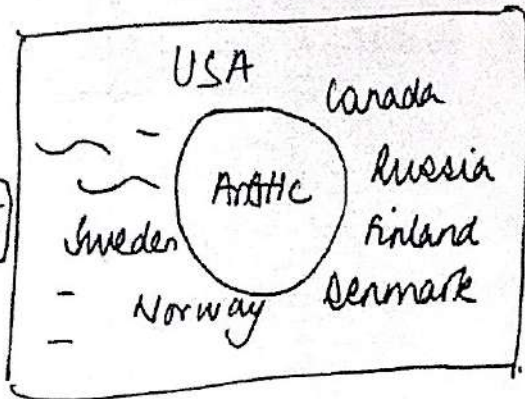 USA
Canada
Arctic
Russia
Sweden
Finland
Norway
Denmark